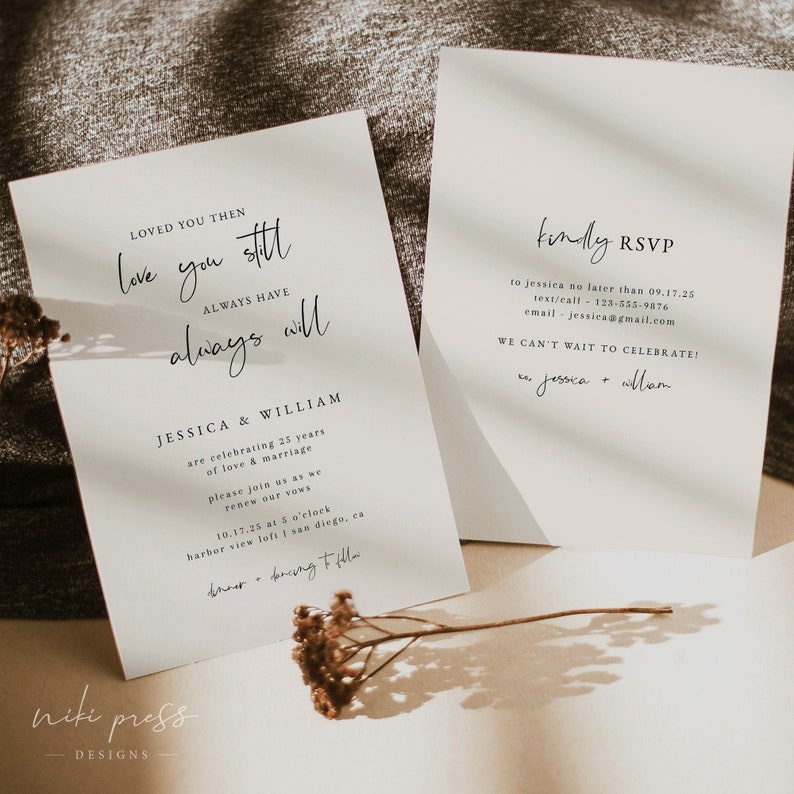 LOVED YOU THEN
love you still
ALWAYS HAVE
always will
JESSICA & WILLIAM
are celebrating 25 years
of love & marriage
please join us as we
renew our vows
10.17.25 at 5 o'clock
harbor view loft | san diego, ca
dinner + dancing to follow
kindly RSVP
to jessica no later than 09.17.25
text/call - 123-555-9876
email - jessica@gmail.com
WE CAN'T WAIT TO CELEBRATE!
xo, jessica + william
niki press
DESIGNS